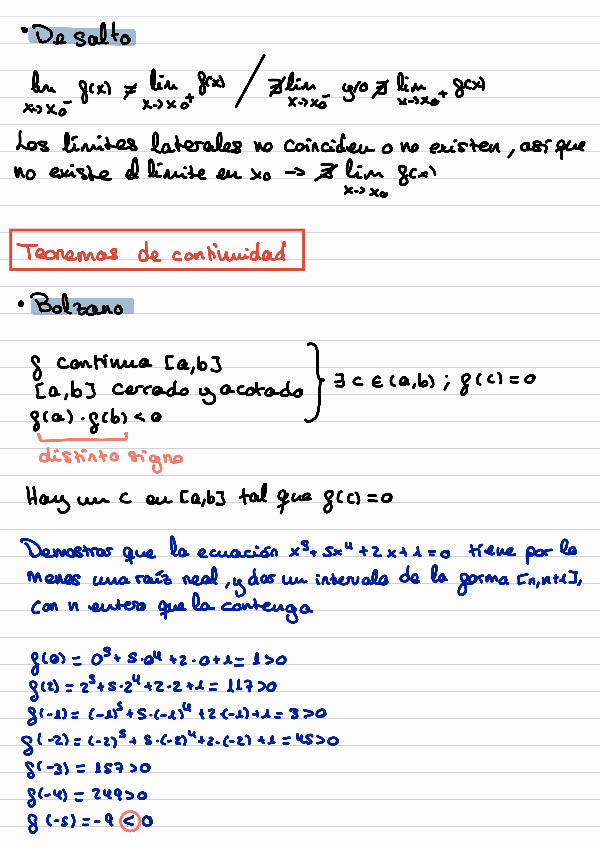 • De salto
lim x→x₀⁻ f(x) ≠ lim x→x₀⁺ f(x) / ∄ lim x→x₀⁻ y/o ∄ lim x→x₀⁺ f(x)
Los límites laterales no coinciden o no existen, así que
no existe el límite en x₀ → ∄ lim x→x₀ f(x)
Teoremas de continuidad
• Bolzano
f continua [a,b]
[a,b] cerrado y acotado
f(a) · f(b) < 0
} ∃ c ∈ (a,b) ; f(c) = 0
distinto signo
Hay un c en [a,b] tal que f(c) = 0
Demostrar que la ecuación x⁵ + 5x⁴ + 2x + 1 = 0 tiene por lo
menos una raíz real, y dar un intervalo de la forma [n, n+1],
con n entero que la contenga
f(0) = 0⁵ + 5·0⁴ + 2·0 + 1 = 1 > 0
f(2) = 2⁵ + 5·2⁴ + 2·2 + 1 = 117 > 0
f(-1) = (-1)⁵ + 5·(-1)⁴ + 2(-1) + 1 = 3 > 0
f(-2) = (-2)⁵ + 5·(-2)⁴ + 2·(-2) + 1 = 45 > 0
f(-3) = 157 > 0
f(-4) = 249 > 0
f(-5) = -9 < 0